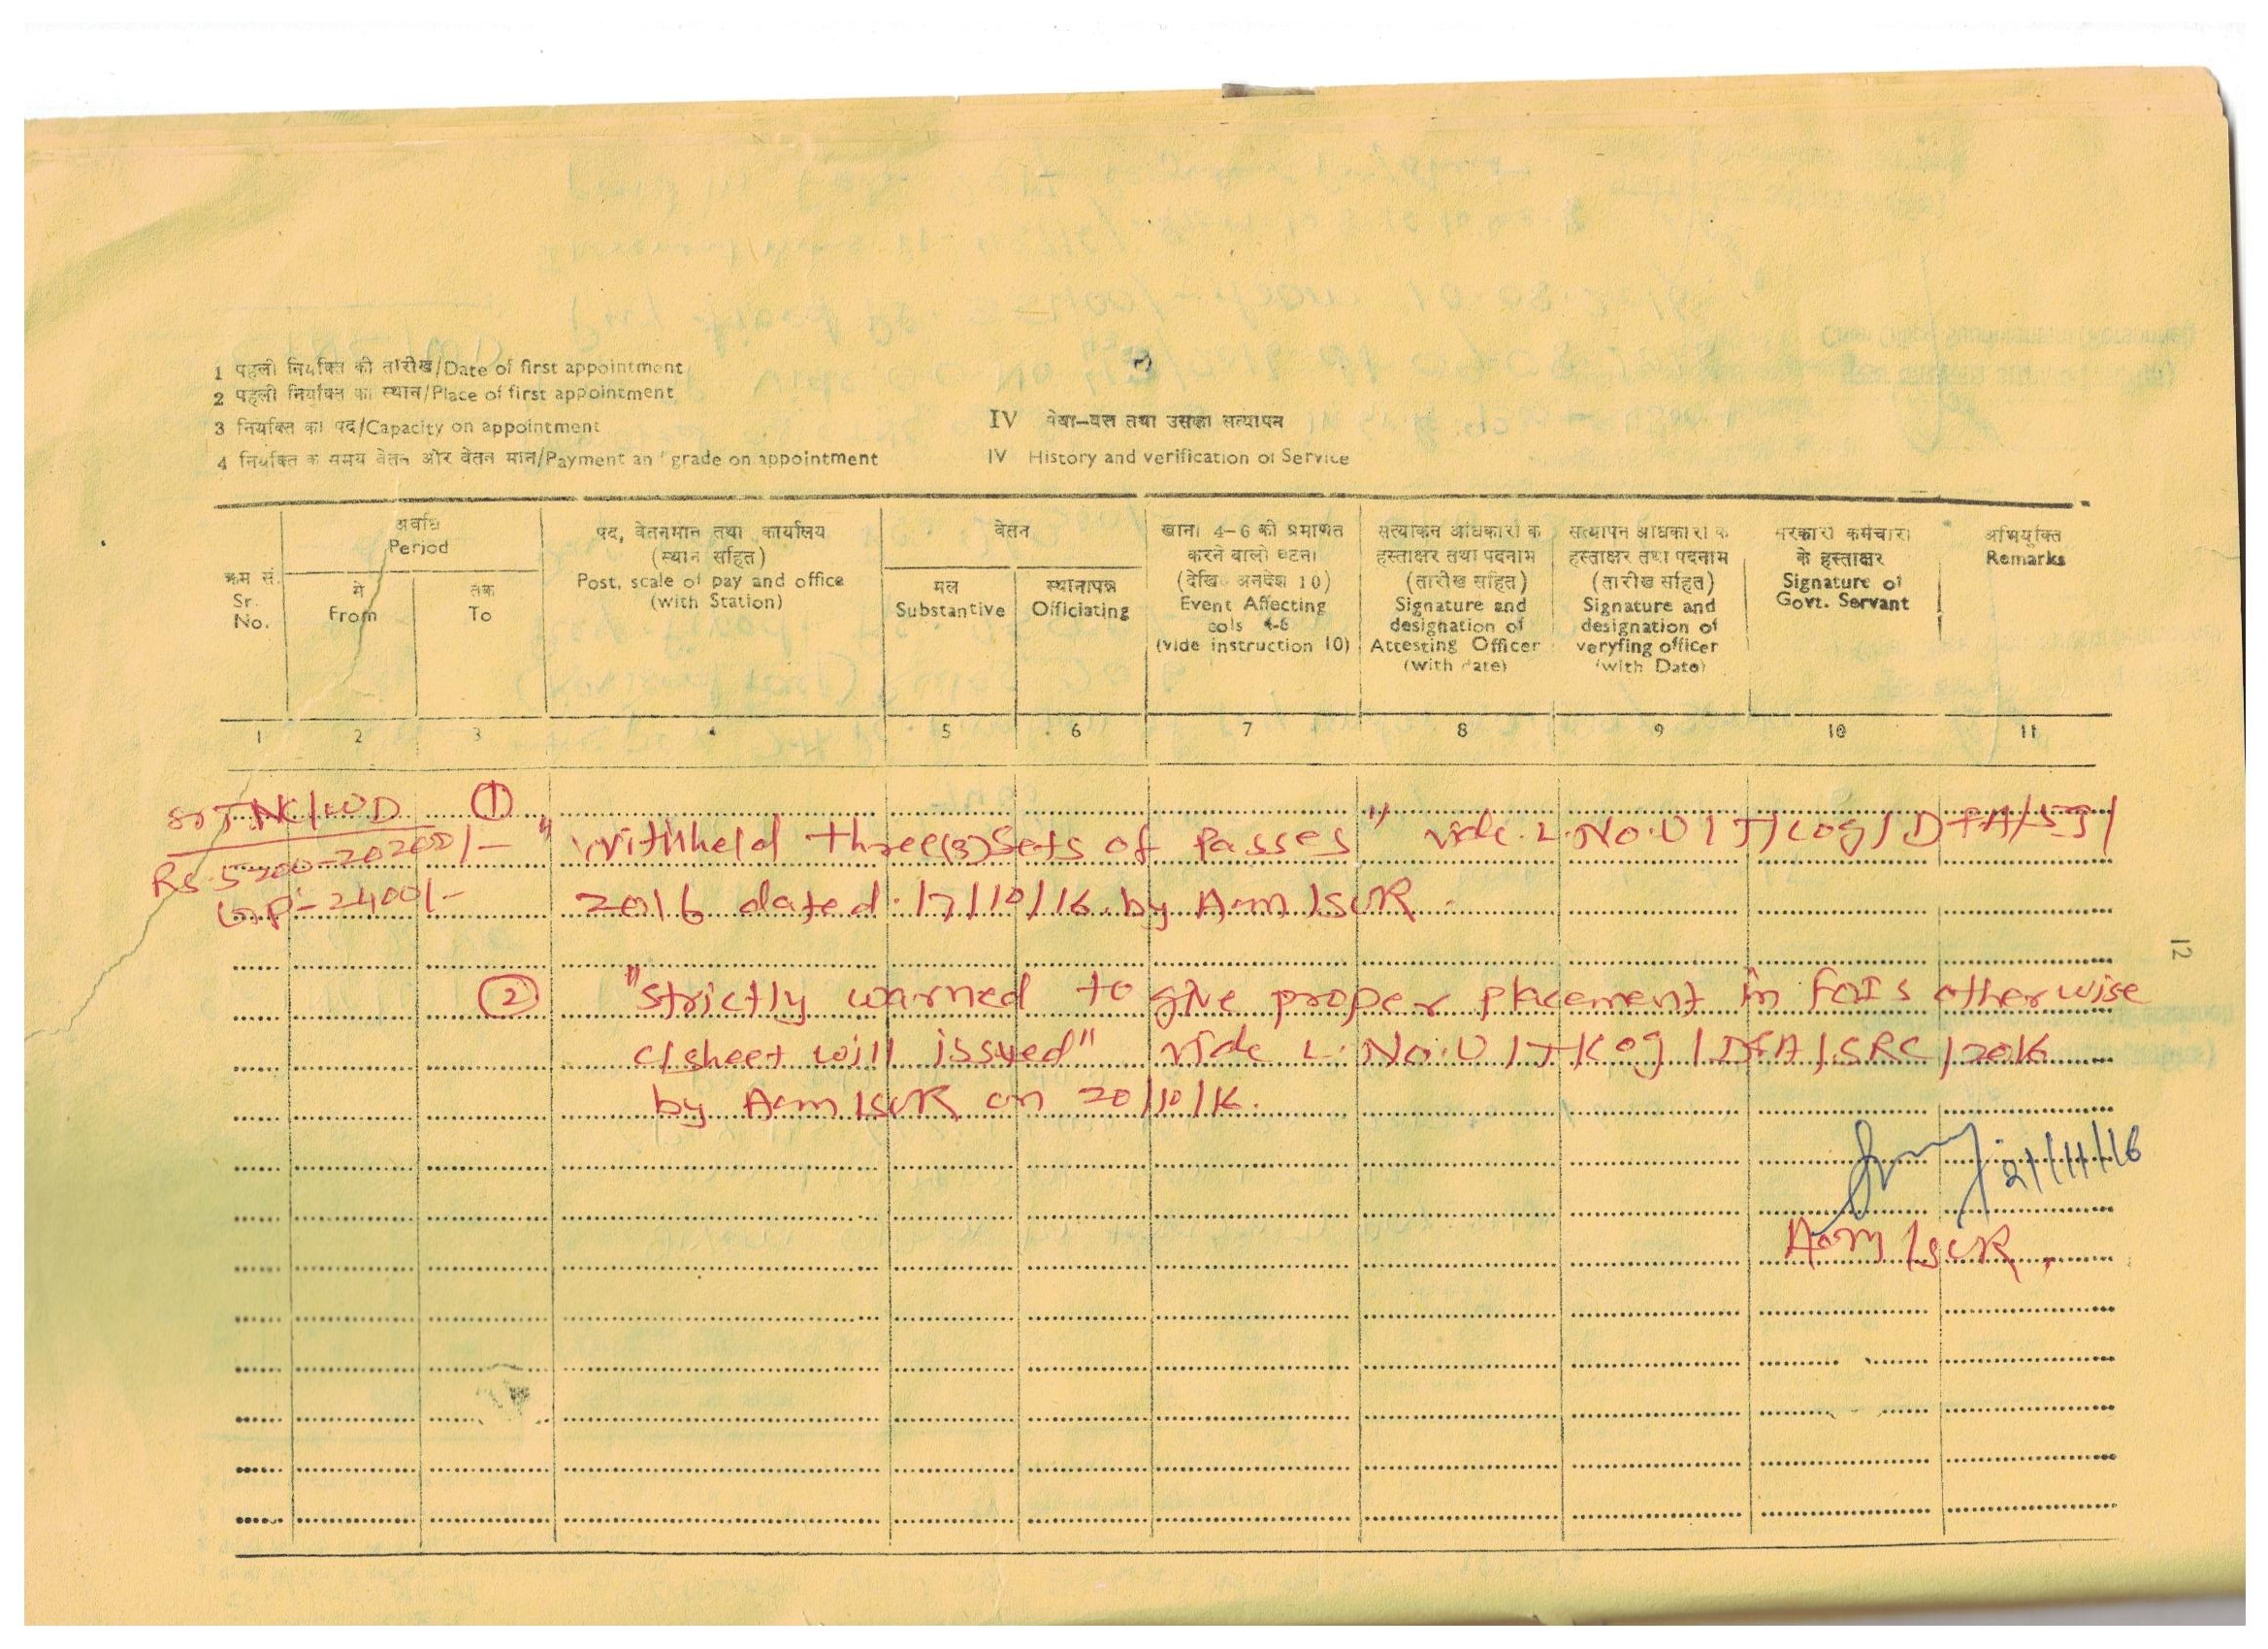 1 पहली नियुक्ति की तारीख/Date of first appointment
2 पहली नियुक्ति का स्थान/Place of first appointment
3 नियुक्ति का पद/Capacity on appointment
4 नियुक्ति के समय वेतन और वेतन मान/Payment and grade on appointment
IV सेवा-वृत्त तथा उसका सत्यापन
IV History and verification of Service
क्रम सं.
Sr.
No.
अवधि
Period
से
From
तक
To
पद, वेतनमान तथा कार्यालय
(स्थान सहित)
Post, scale of pay and office
(with Station)
वेतन
मूल
Substantive
स्थानापन्न
Officiating
खाना 4-6 को प्रमाणित
करने वाली घटना
(देखि अनुदेश 10)
Event Affecting
cols 4-6
(vide instruction 10)
सत्यांकन अधिकारी के
हस्ताक्षर तथा पदनाम
(तारीख सहित)
Signature and
designation of
Attesting Officer
(with date)
सत्यापन अधिकारी के
हस्ताक्षर तथा पदनाम
(तारीख सहित)
Signature and
designation of
veryfing officer
(with Date)
सरकारी कर्मचारी
के हस्ताक्षर
Signature of
Govt. Servant
अभियुक्ति
Remarks
1 2 3 4 5 6 7 8 9 10 11
Sr.TNC/WD ①
Rs 5200-20200/-
G.P-2400/-
"Withheld three(3)Sets of Passes" vide L.No.U/T/Cog/DFA/59/
2016 dated.17/10/16 by Aom/SUR.
② "Strictly warned to give proper placement in FOIS otherwise
c/sheet will issued" vide L.No.U/T/Cog/DFA/SRC/2016
by Aom/SUR on 20/10/16.
21/11/16
Aom/SUR.
12